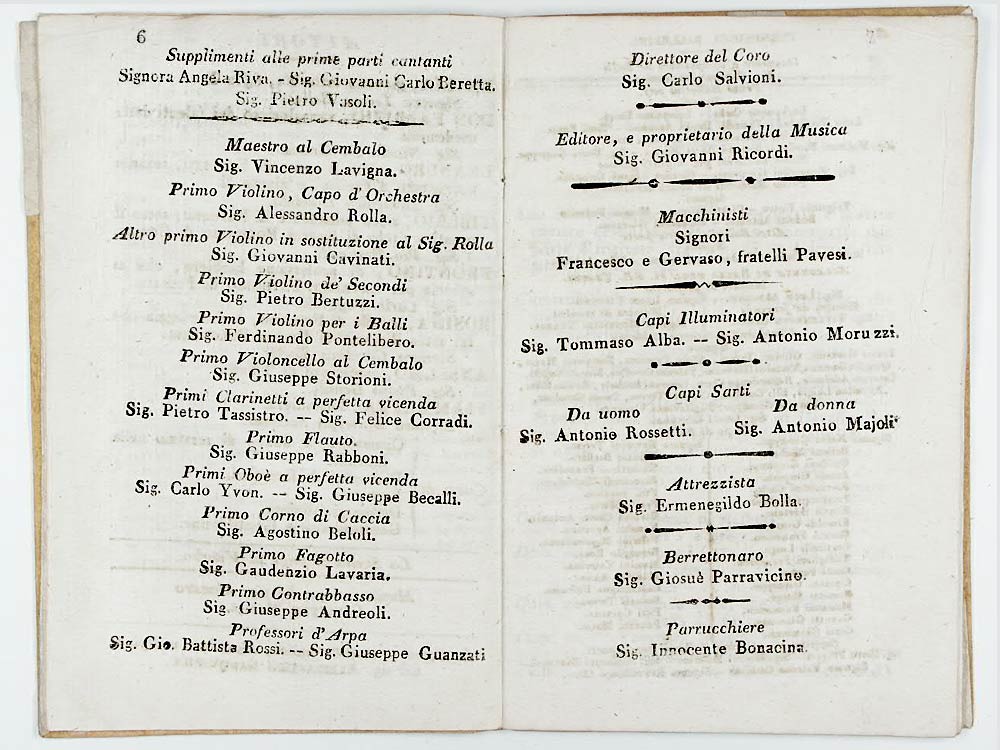 6
Supplimenti alle prime parti cantanti
Signora Angela Riva. - Sig. Giovanni Carlo Beretta.
Sig. Pietro Vasoli.
Maestro al Cembalo
Sig. Vincenzo Lavigna.
Primo Violino, Capo d'Orchestra
Sig. Alessandro Rolla.
Altro primo Violino in sostituzione al Sig. Rolla
Sig. Giovanni Cavinati.
Primo Violino de' Secondi
Sig. Pietro Bertuzzi.
Primo Violino per i Balli
Sig. Ferdinando Pontelibero.
Primo Violoncello al Cembalo
Sig. Giuseppe Storioni.
Primi Clarinetti a perfetta vicenda
Sig. Pietro Tassistro. -- Sig. Felice Corradi.
Primo Flauto.
Sig. Giuseppe Rabboni.
Primi Oboè a perfetta vicenda
Sig. Carlo Yvon. -- Sig. Giuseppe Becalli.
Primo Corno di Caccia
Sig. Agostino Beloli.
Primo Fagotto
Sig. Gaudenzio Lavaria.
Primo Contrabbasso
Sig. Giuseppe Andreoli.
Professori d'Arpa
Sig. Gio. Battista Rossi. -- Sig. Giuseppe Guanzati
7
Direttore del Coro
Sig. Carlo Salvioni.
Editore, e proprietario della Musica
Sig. Giovanni Ricordi.
Macchinisti
Signori
Francesco e Gervaso, fratelli Pavesi.
Capi Illuminatori
Sig. Tommaso Alba. -- Sig. Antonio Moruzzi.
Capi Sarti
Da uomo Da donna
Sig. Antonio Rossetti. Sig. Antonio Majoli
Attrezzista
Sig. Ermenegildo Bolla.
Berrettonaro
Sig. Giosuè Parravicino.
Parrucchiere
Sig. Innocente Bonacina.